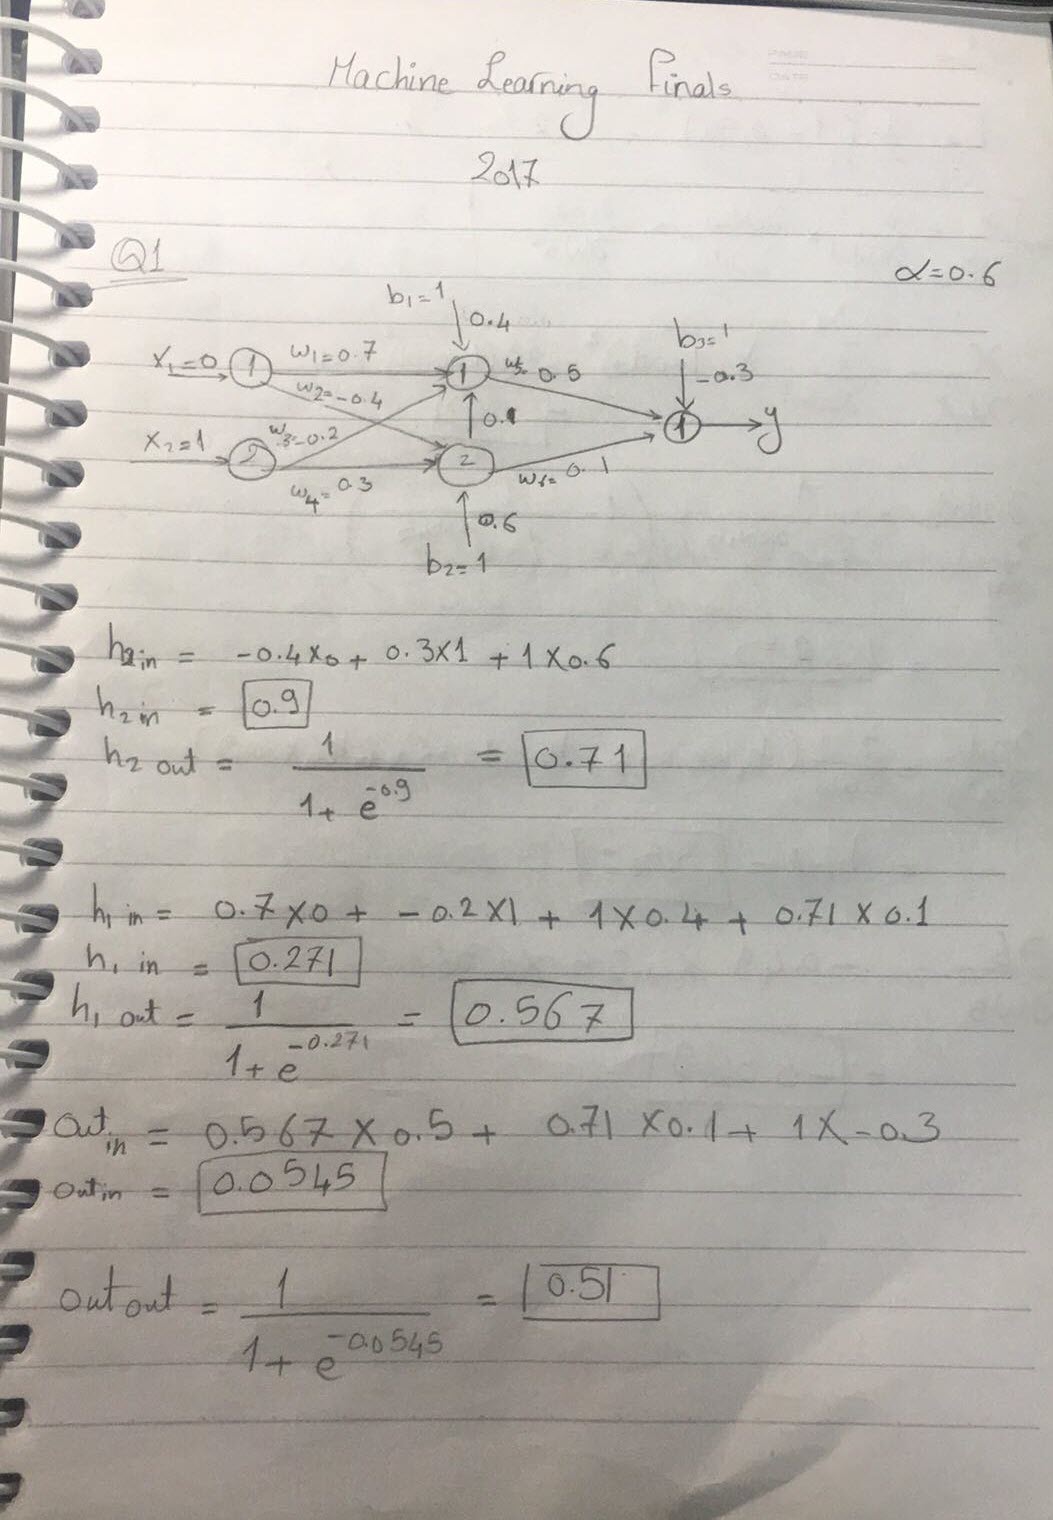 Machine Learning Finals
2017
Q1
α=0.6
b₁=1
0.4
b₃=1
-0.3
x₁=0
1
w₁=0.7
1
w₅= 0.5
w₂=-0.4
0.1
1
y
x₂=1
2
w₃=-0.2
2
w₄=0.3
w₆= 0.1
0.6
b₂=1
h₂ in = -0.4x0 + 0.3x1 + 1x0.6
h₂ in = 0.9
h₂ out = 1 / 1+ e^-0.9 = 0.71
h₁ in = 0.7x0 + -0.2x1 + 1x0.4 + 0.71 x 0.1
h₁ in = 0.271
h₁ out = 1 / 1+ e^-0.271 = 0.567
out in = 0.567 x 0.5 + 0.71 x0.1 + 1x-0.3
out in = 0.0545
out out = 1 / 1+ e^-0.0545 = 0.51